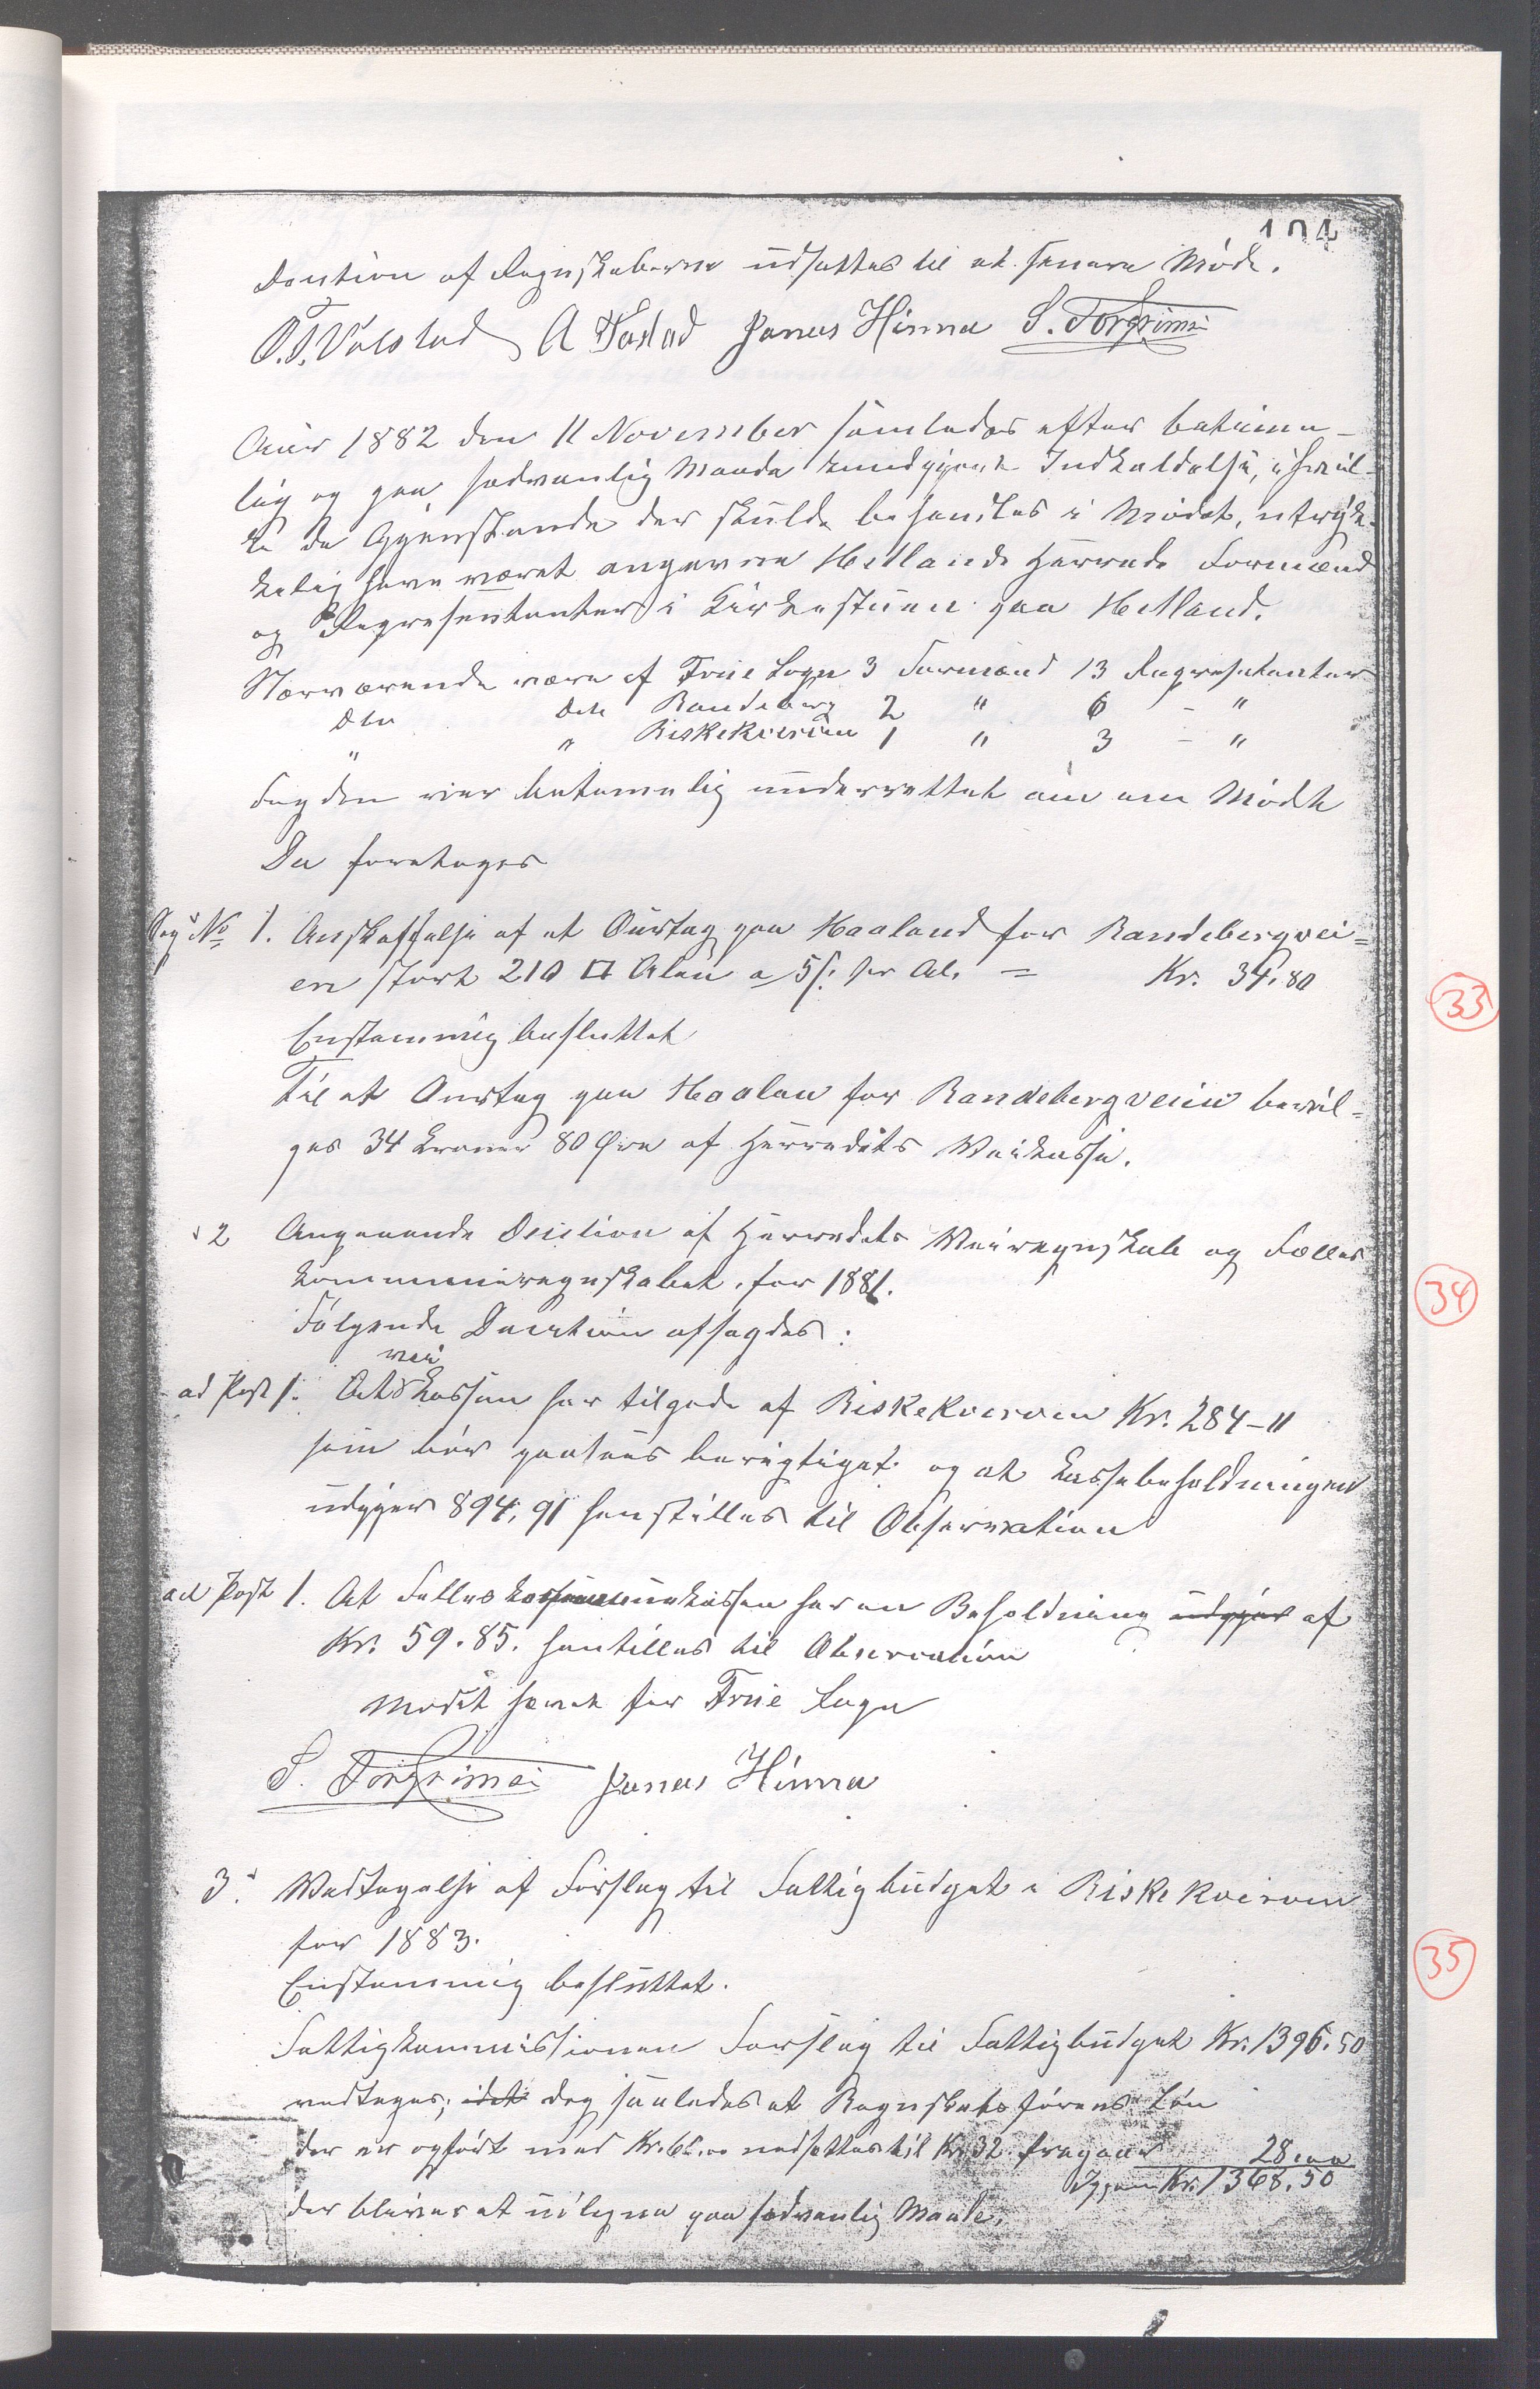 104
Decition af Regnskaberne udsættes til et senere Møde.
A Tastad Jonas Hinna S. Torgrimsen
Aar 1882 den 11 November samledes efter betime-
lig og paa sædvanlig Maade kundgjort Indkaldelse, i hvil-
ke de Gjenstande der skulde behandles i Mødet, utrykke-
kelig have været angivne Hetlands Herreds Formænd
og Repræsentanter i Kirkestuen paa Hetland.
Nærværende være af Frue Sogn 3 Formænd 13 Repræsentanter
Dto Dette Randeberg 2 " 6 - "
" " Riskekvervin 1 " 3 - "
Fogden var betimelig underrettet om Mødet
Da foretoges
Sag No 1. Anskaffelse af et Ourtag paa Haaland for Randebergvei=
en stort 210 □ Alen a 5 s. pr Al. = Kr. 34.80
33
Enstemmig besluttet
Til et Ourtag paa Haalan for Randebergveien bevil=
ges 34 Kroner 80 Øre af Herredets Veikasse.
2 Angaaende Decition af Herredets Veiregnskab og Fælles
kommuneregnskabet for 1881.
34
Følgende Decition afsagdes:
vei
ad Post 1. At Kassen har tilgode af Riskekverven Kr. 284-11
som bør paasees berigtiget og at Kassebeholdningen
udgjør 894,91 henstilles til Observation
ad Post 1. At Felleskommunekassen har en Beholdning udgjør af
Kr. 59.85. henstilles til Observation
Mødet hævet for Frue Sogn
S. Torgrimsen Jonas Hinna
3. Vedtagelse af Forslag til Fattigbudget i Riskekverven
for 1883.
35
Enstemmig besluttet.
Fattigkommissionens Forslag til Fattigbudget Kr. 1396.50
vedtages; idet dog saaledes at Regnskabsførens Løn
der er opført med Kr. 60.00 nedsættes til Kr. 32. fragaar 28.00
Igjen Kr. 1368.50
der bliver at udligne paa sædvanlig Maade.